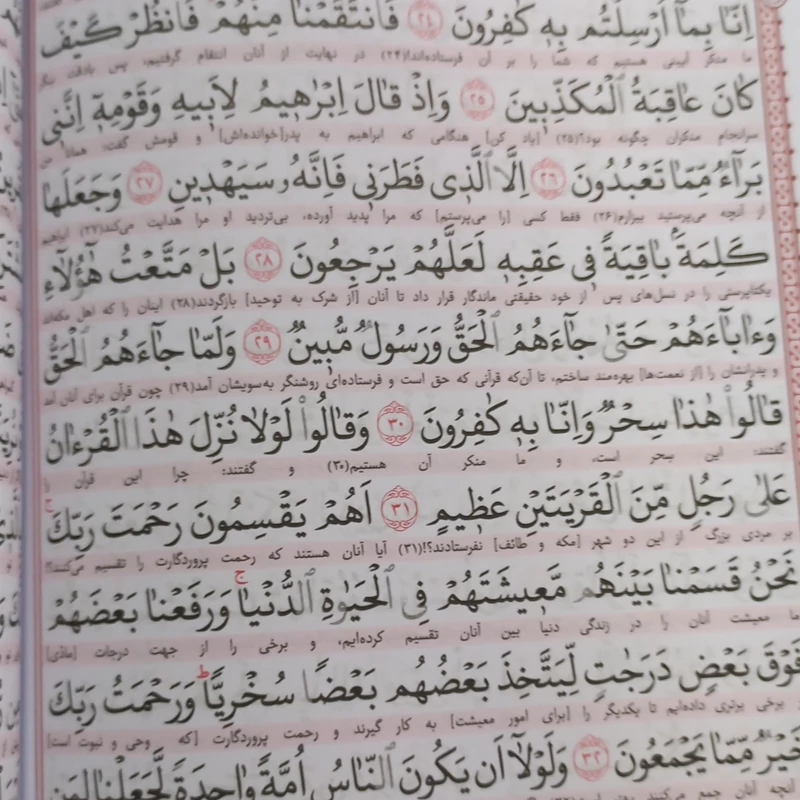 اِنّا بِمآ اُرْسِلْتُمْ بِهٖ كٰفِرُونَ ﴿٢٤﴾ فَانْتَقَمْنا مِنْهُمْ فَانْظُرْ كَيْفَ
ما منکر آیینی هستیم که شما را بر آن فرستاده‌اند!(۲۴) در نهایت از آنان انتقام گرفتیم، پس بادقت بنگر
كانَ عاقِبَةُ الْمُكَذِّبينَ ﴿٢٥﴾ وَاِذْ قالَ اِبْرٰهيمُ لِاَبيهِ وَقَوْمِهٖٓ اِنَّني
سرانجام منکران چگونه بود؟(۲۵) [یاد کن] هنگامی که ابراهیم به پدر[خوانده‌اش] و قومش گفت: همانا من
بَرآءٌ مِمّا تَعْبُدُونَ ﴿٢٦﴾ اِلَّا الَّذي فَطَرَني فَاِنَّهُۥ سَيَهْدينِ ﴿٢٧﴾ وَجَعَلَها
از آنچه می‌پرستید بیزارم(۲۶) فقط کسی [را می‌پرستم] که مرا پدید آورده، بی‌تردید او مرا هدایت می‌کند(۲۷) ابراهیم
كَلِمَةً باقِيَةً في عَقِبِهٖ لَعَلَّهُمْ يَرْجِعُونَ ﴿٢٨﴾ بَلْ مَتَّعْتُ هٰٓؤُلآءِ
یکتاپرستی را در نسل‌های پس از خود حقیقتی ماندگار قرار داد تا آنان [از شرک به توحید] بازگردند(۲۸) اینان را که اهل مکه‌اند
وَءابآءَهُمْ حَتّىٰ جآءَهُمُ الْحَقُّ وَرَسُولٌ مُّبينٌ ﴿٢٩﴾ وَلَمّا جآءَهُمُ الْحَقُّ
و پدرانشان را [از نعمت‌ها] بهره‌مند ساختم، تا آن‌که قرآنی که حق است و فرستاده‌ای روشنگر به‌سویشان آمد(۲۹) چون قرآن برای آنان آمد
قالُوا هٰذا سِحْرٌ وَاِنّا بِهٖ كٰفِرُونَ ﴿٣٠﴾ وَقالُوا لَوْلا نُزِّلَ هٰذَا الْقُرْءانُ
گفتند: این سحر است، و ما منکر آن هستیم(۳۰) و گفتند: چرا این قرآن را
عَلىٰ رَجُلٍ مِّنَ الْقَرْيَتَيْنِ عَظيمٍ ﴿٣١﴾ اَهُمْ يَقْسِمُونَ رَحْمَتَ رَبِّكَ ج
بر مردی بزرگ از این دو شهر [مکه و طائف] نفرستادند؟!(۳۱) آیا آنان هستند که رحمت پروردگارت را تقسیم می‌کنند؟!
نَحْنُ قَسَمْنا بَيْنَهُمْ مَّعيشَتَهُمْ فِي الْحَيٰوةِ الدُّنْيا ج وَرَفَعْنا بَعْضَهُمْ
ما معیشت آنان را در زندگی دنیا بین آنان تقسیم کرده‌ایم، و برخی را از جهت درجات [مادّی]
فَوْقَ بَعْضٍ دَرَجٰتٍ لِّيَتَّخِذَ بَعْضُهُمْ بَعْضًا سُخْرِيًّا ط وَرَحْمَتُ رَبِّكَ
بر برخی برتری داده‌ایم تا یکدیگر را [برای امور معیشت] به کار گیرند و رحمت پروردگارت [که وحی و نبوت است]
خَيْرٌ مِّمّا يَجْمَعُونَ ﴿٣٢﴾ وَلَوْلآ اَنْ يَكُونَ النّاسُ اُمَّةً واحِدَةً لَّجَعَلْنا لِمَنْ
آنچه آنان جمع می‌کنند